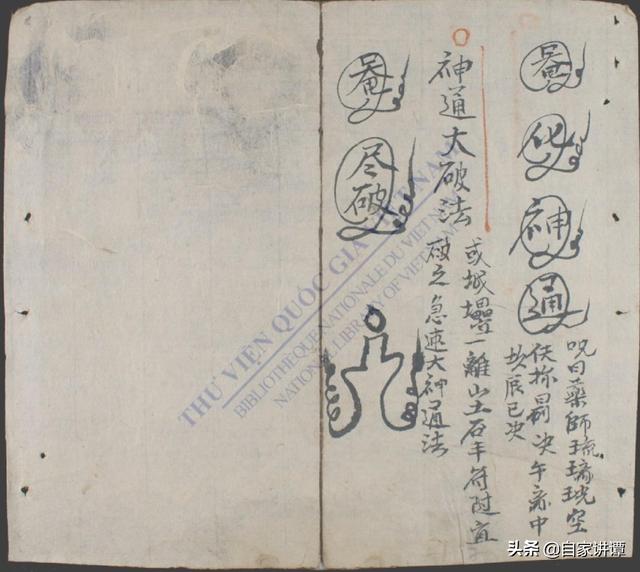 化
神
通
咒曰藥師琉璃珖空
决午亥中
坎辰已决
神通大破法
或城壘一離山土石年符过宜
破之急速大神通法
尽破
THƯ VIỆN QUỐC GIA VIỆT NAM
BIBLIOTHÈQUE NATIONALE DU VIETNAM
NATIONAL LIBRARY OF VIETNAM
头条 @自家讲谭